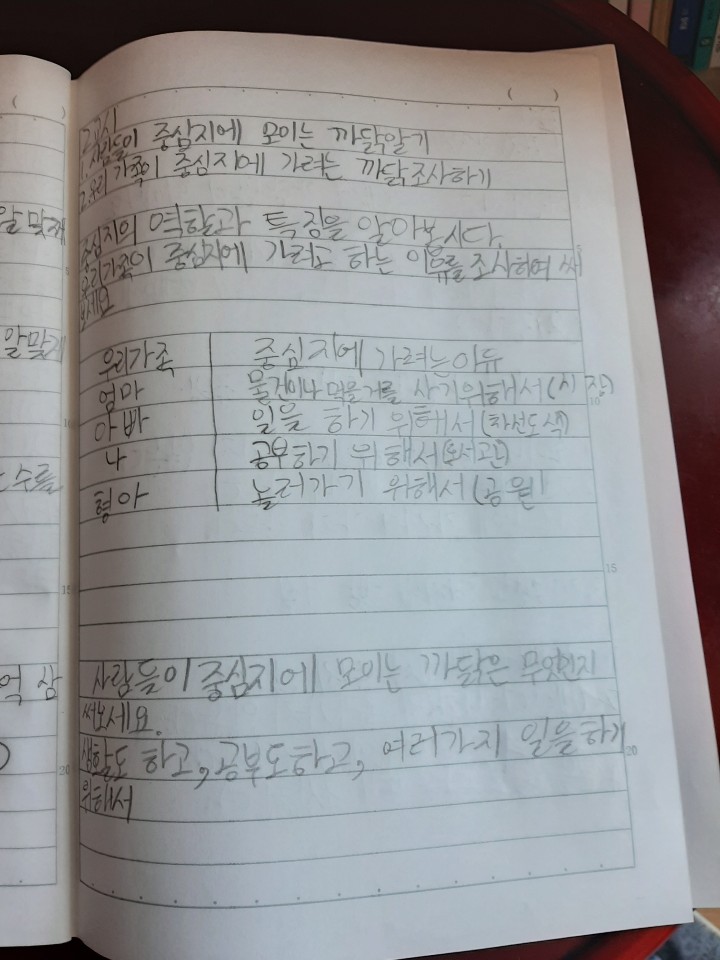 알맞게
알맞게
는 수를
억 삼
2교시
1. 사람들이 중심지에 모이는 까닭알기
2. 우리 가족이 중심지에 가려는 까닭조사하기
중심지의 역할과 특징을 알아봅시다.
우리가족이 중심지에 가려고 하는 이유를 조사하여 써
보세요
우리가족 중심지에 가려는이유
엄마 물건이나 먹을거를 사기위해서(시장)
아빠 일을 하기 위해서(차선도색)
나 공부하기 위해서(도서관)
형아 놀러가기 위해서(공원)
사람들이 중심지에 모이는 까닭은 무엇인지
써보세요.
생활도 하고, 공부도하고, 여러가지 일을하기
위해서
5
10
15
20
15
20